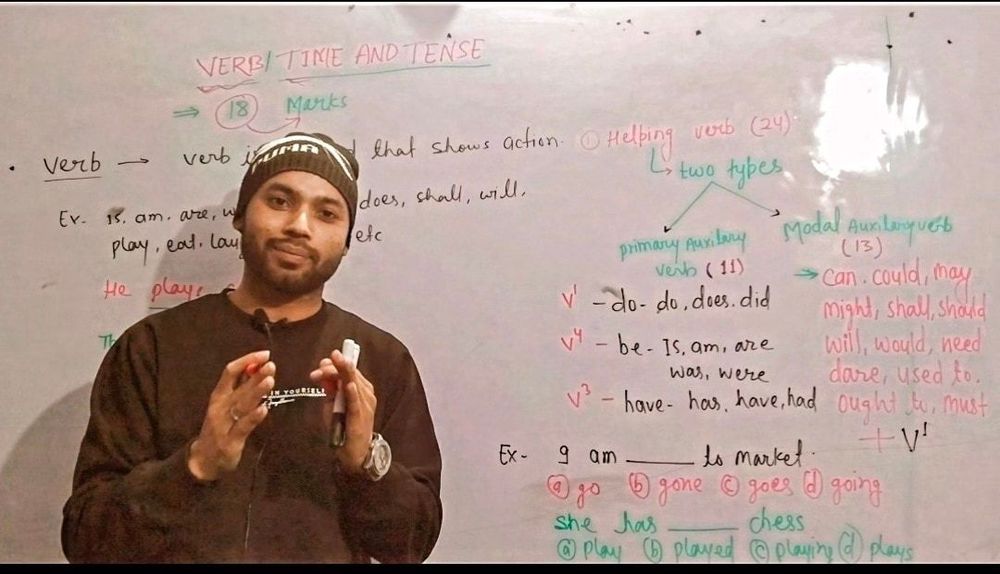 VERB/ TIME AND TENSE
⇒ 18 Marks
• Verb → verb that shows action.
Ex- is, am, are, does, shall, will,
play, eat, etc
He plays
① Helping verb (24)
two types
primary Auxilary
verb (11)
V¹ - do - do, does. did
V⁴ - be - Is, am, are
was, were
V³ - have - has, have, had
Modal Auxilary verb
(13)
→ can. could, may
might, shall, should
will, would, need
dare, used to.
ought to, must
+ V¹
Ex- I am ____ to market.
ⓐ go ⓑ gone ⓒ goes ⓓ going
She has ____ chess
ⓐ play ⓑ played ⓒ playing ⓓ plays
PUMA
IN YOURSELF